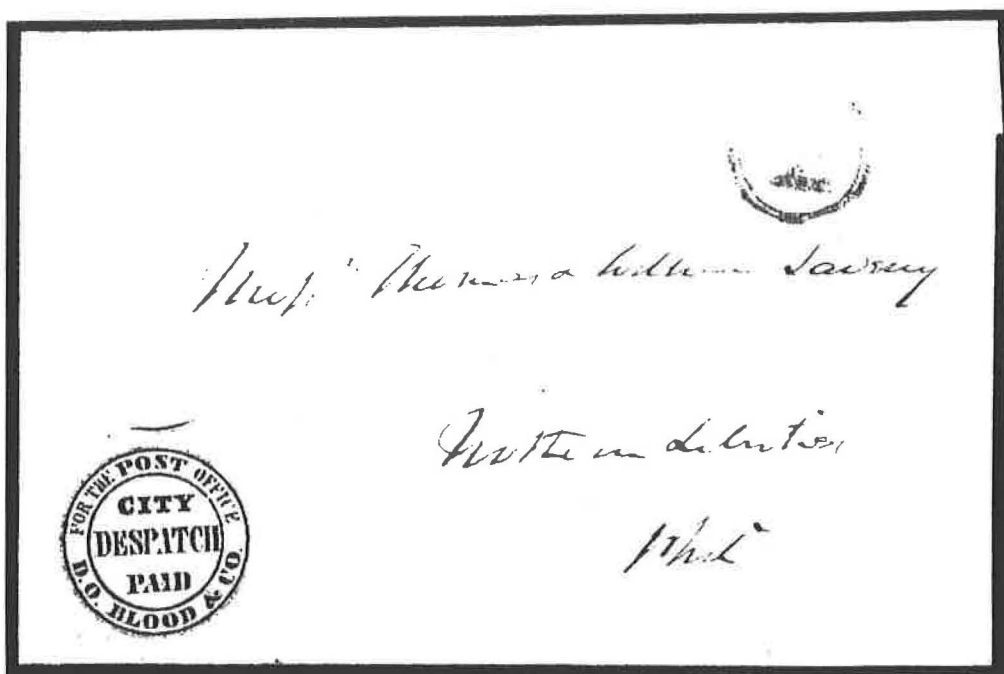 Thomas & William
Northern Liberties
Phila
FOR THE POST OFFICE
CITY
DESPATCH
PAID
D.O. BLOOD & CO.